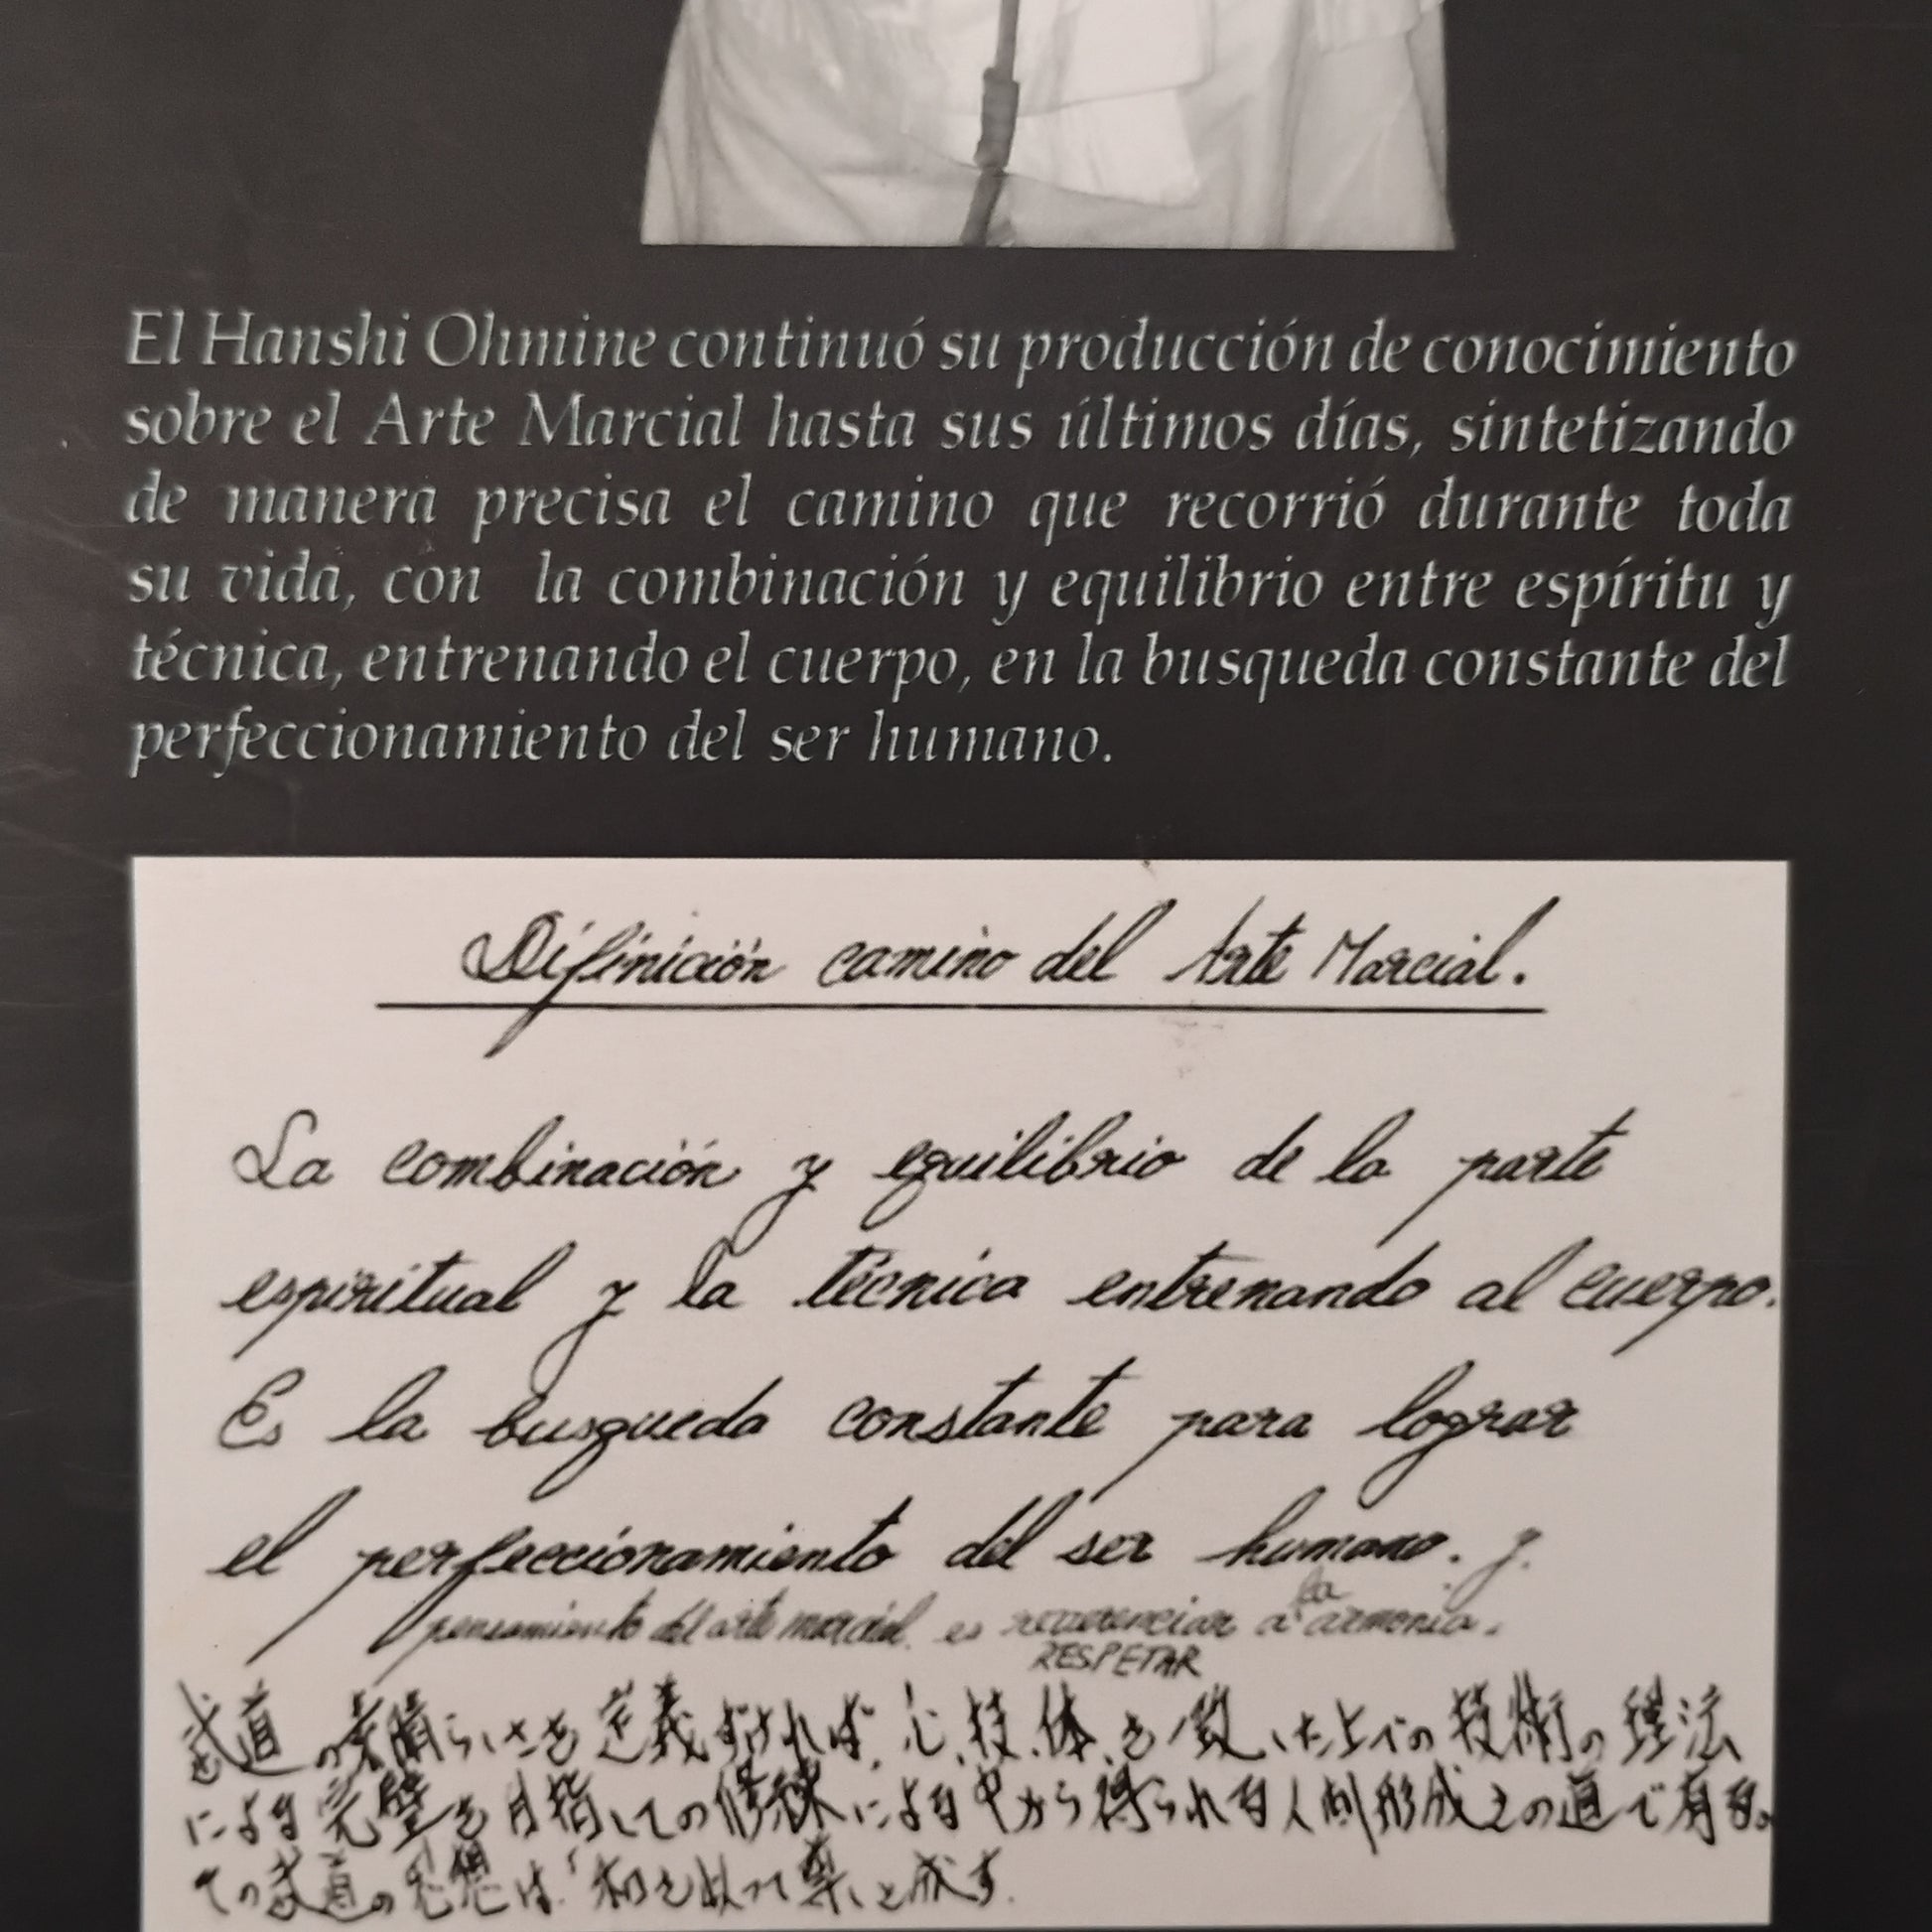 El Hanshi Ohmine continuó su producción de conocimiento
sobre el Arte Marcial hasta sus últimos días, sintetizando
de manera precisa el camino que recorrió durante toda
su vida, con la combinación y equilibrio entre espíritu y
técnica, entrenando el cuerpo, en la busqueda constante del
perfeccionamiento del ser humano.
Difinición camino del Arte Marcial.
La combinación y equilibrio de la parte
espiritual y la técnica entrenando al cuerpo.
Es la busqueda constante para lograr
el perfeccionamiento del ser humano. y.
la
pensamiento del arte marcial. es reverenciar a armonía.
RESPETAR
武道の素晴らしさを定義ずければ、心、技、体、を一致した上での技術の理法
による完璧を目指しての修練による中から得られる人間形成之の道で有る。
その武道の思想は「和を以って尊しと成す.